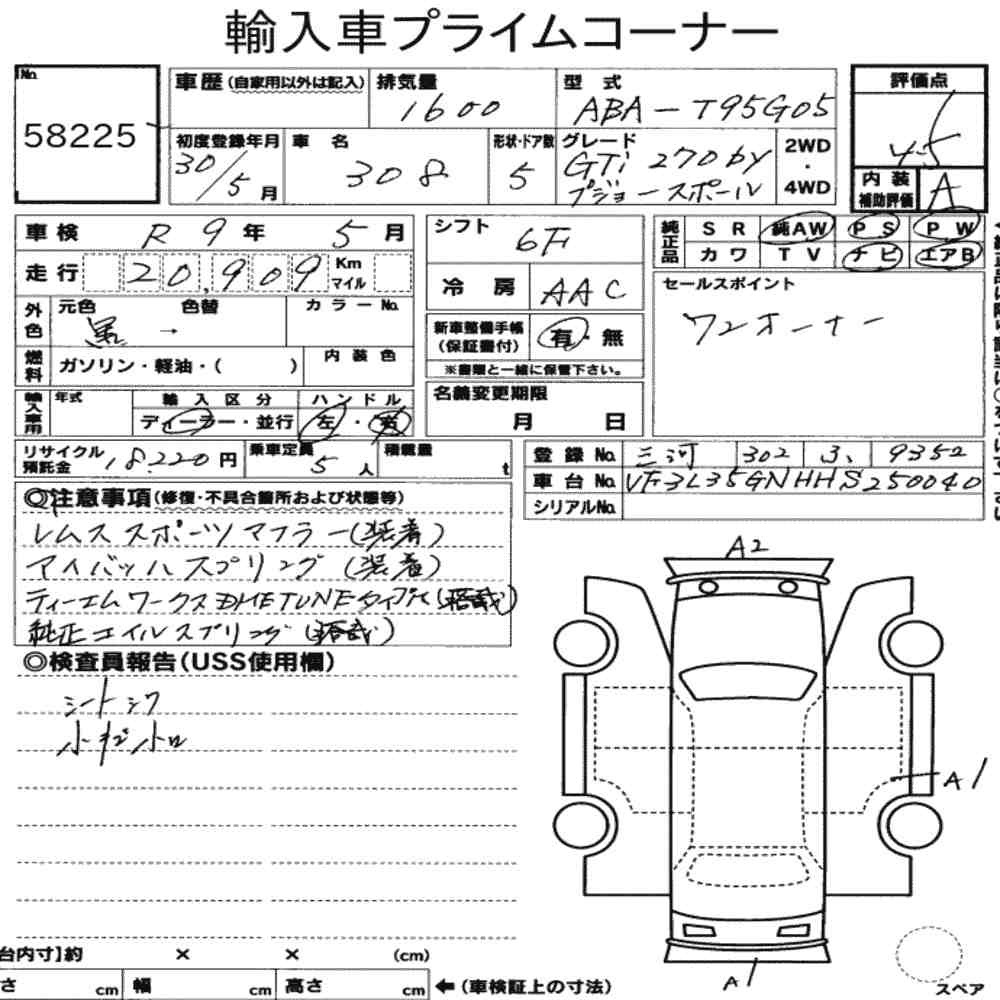 輸入車プライムコーナー
No.
58225
車歴(自家用以外は記入)
排気量
1600
型 式
ABA-T95G05
評価点
4.5
内装
補助評価
A
初度登録年月
30/5月
車 名
308
形状・ドア数
5
グレード
GTi 270 by
プジョースポール
2WD
・
4WD
車検 R 9年 5月
走行 20,909 Km
マイル
外色
元色 黒 →
色替
カラーNo.
燃料
ガソリン・軽油・( )
内装色
輸入車用
年式
輸入区分
ディーラー・並行
ハンドル
左・右
リサイクル
預託金 18220円
乗車定員
5人
積載量
t
シフト
6F
冷房
AAC
新車整備手帳
(保証書付)
有・無
※書類と一緒に保管下さい。
名義変更期限
月 日
純正品
SR 純AW PS PW
カワ TV ナビ エアB
セールスポイント
ワンオーナー
登録No. 三河 302 3. 9352
車台No. VF3L35GNHHS250040
シリアルNo.
◎注意事項(修復・不具合箇所および状態等)
レムススポーツマフラー(装着)
アイバッハスプリング(装着)
ティーエムワークス DHETUNEタイプ(搭載)
純正コイルスプリング(搭載)
◎検査員報告(USS使用欄)
シートシワ
小キズ小凹
A2
A1
A1
スペア
台内寸】約 × × (cm)
さ cm 幅 cm 高さ cm ←(車検証上の寸法)